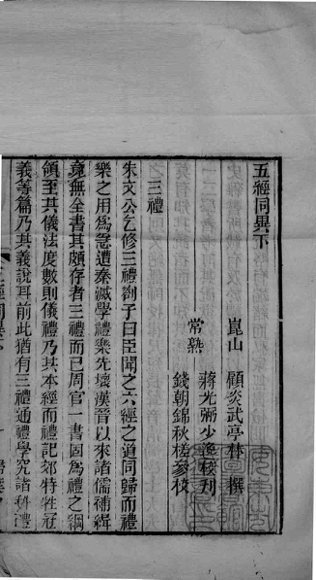 五經同異下
崑山 顧炎武亭林 撰
常熟 蔣光弼少逸校刋
錢朝錦秋槎參校
三禮
朱文公乞修三禮劄子曰臣聞之六經之道同歸而禮
樂之用爲急遭秦滅學禮樂先壞漢晉以來諸儒補緝
竟無全書其頗存者三禮而已周官一書固爲禮之綱
領至其儀法度數則儀禮乃其本經而禮記郊特牲冠
義等篇乃其義說耳前此猶有三禮通禮學究諸科禮